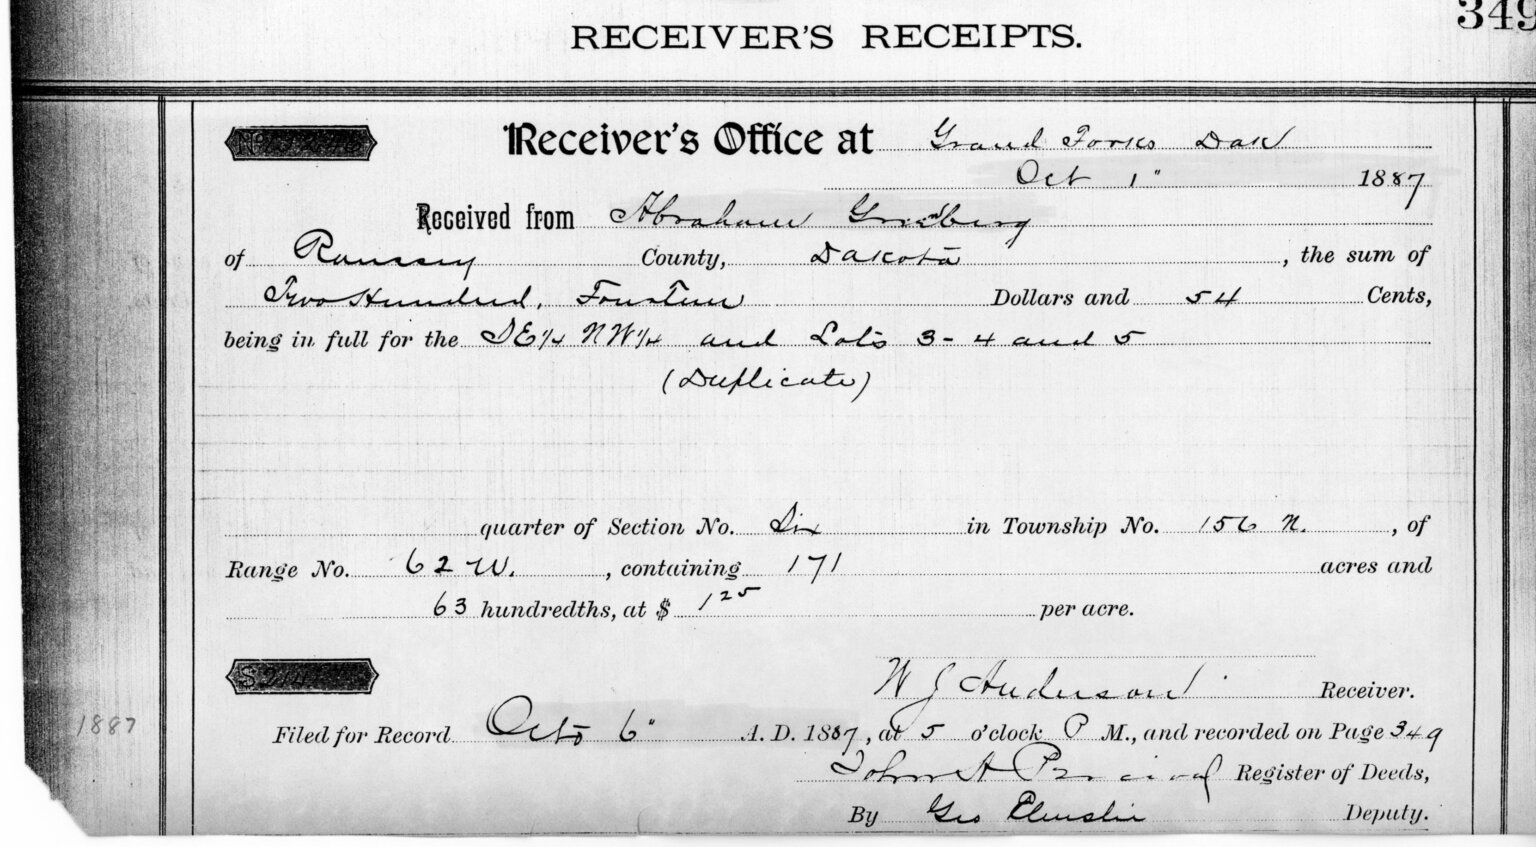 349
RECEIVER'S RECEIPTS.
No.
Receiver's Office at Grand Forks Dak
Oct 1" 1887
Received from Abraham Greenberg
of Ramsey County, Dakota, the sum of
Two Hundred, Fourteen Dollars and 54 Cents,
being in full for the SE 1/4 NW 1/4 and Lots 3 - 4 and 5
(Duplicate)
quarter of Section No. Six in Township No. 156 N., of
Range No. 62 W., containing 171 acres and
63 hundredths, at $ 1 25 per acre.
$ 214
W J Anderson Receiver.
1887
Filed for Record Oct 6" A. D. 1887, at 5 o'clock P M., and recorded on Page 349
John A Percival Register of Deeds,
By Geo Elmslie Deputy.